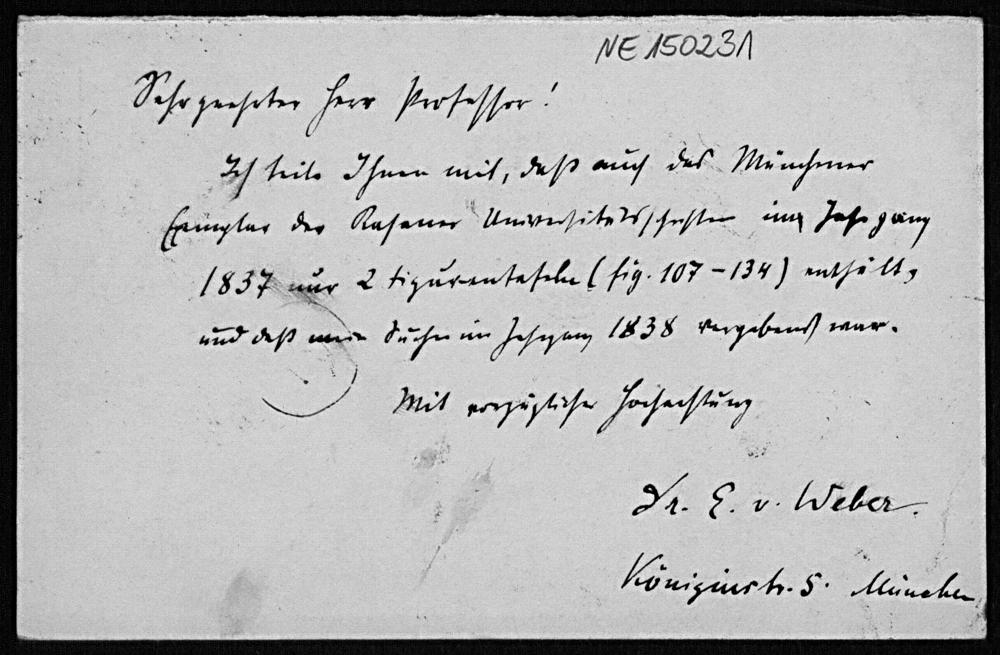 NE 150231
Sehr geehrter Herr Professor!
Ich teile Ihnen mit, daß auch das Münchener
Exemplar der Kasaner Universitätsschriften im Jahrgang
1837 nur 2 Figurentafeln (fig. 107–134) enthält,
und daß mein Suchen im Jahrgang 1838 vergebens war.
Mit vorzüglicher Hochachtung
Dr. E. v. Weber.
Königinstr. 5. München